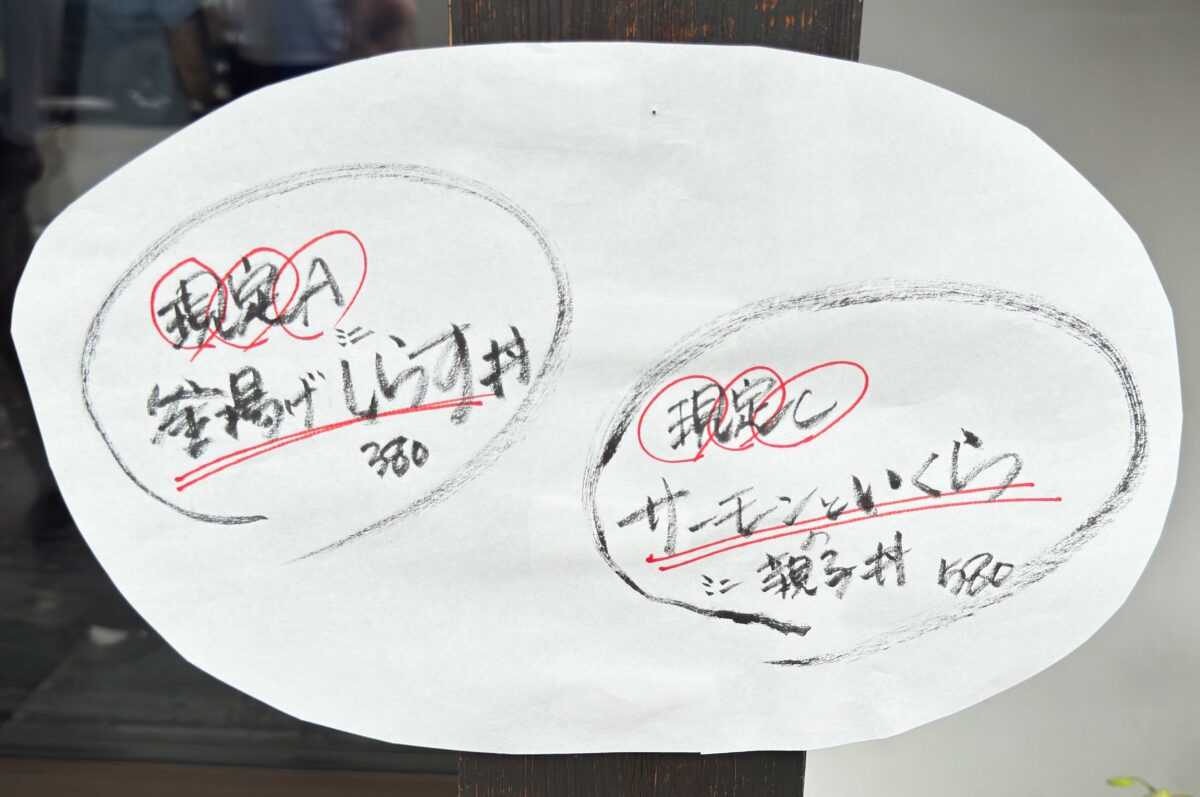 現定A
釜揚げミニしらす丼
380
現定C
サーモンといくら
の
ミニ親子丼 580